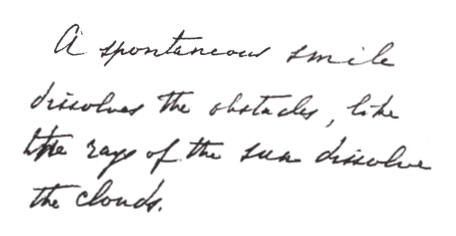 A spontaneous smile
dissolves the obstacles, like
the rays of the sun dissolve
the clouds.